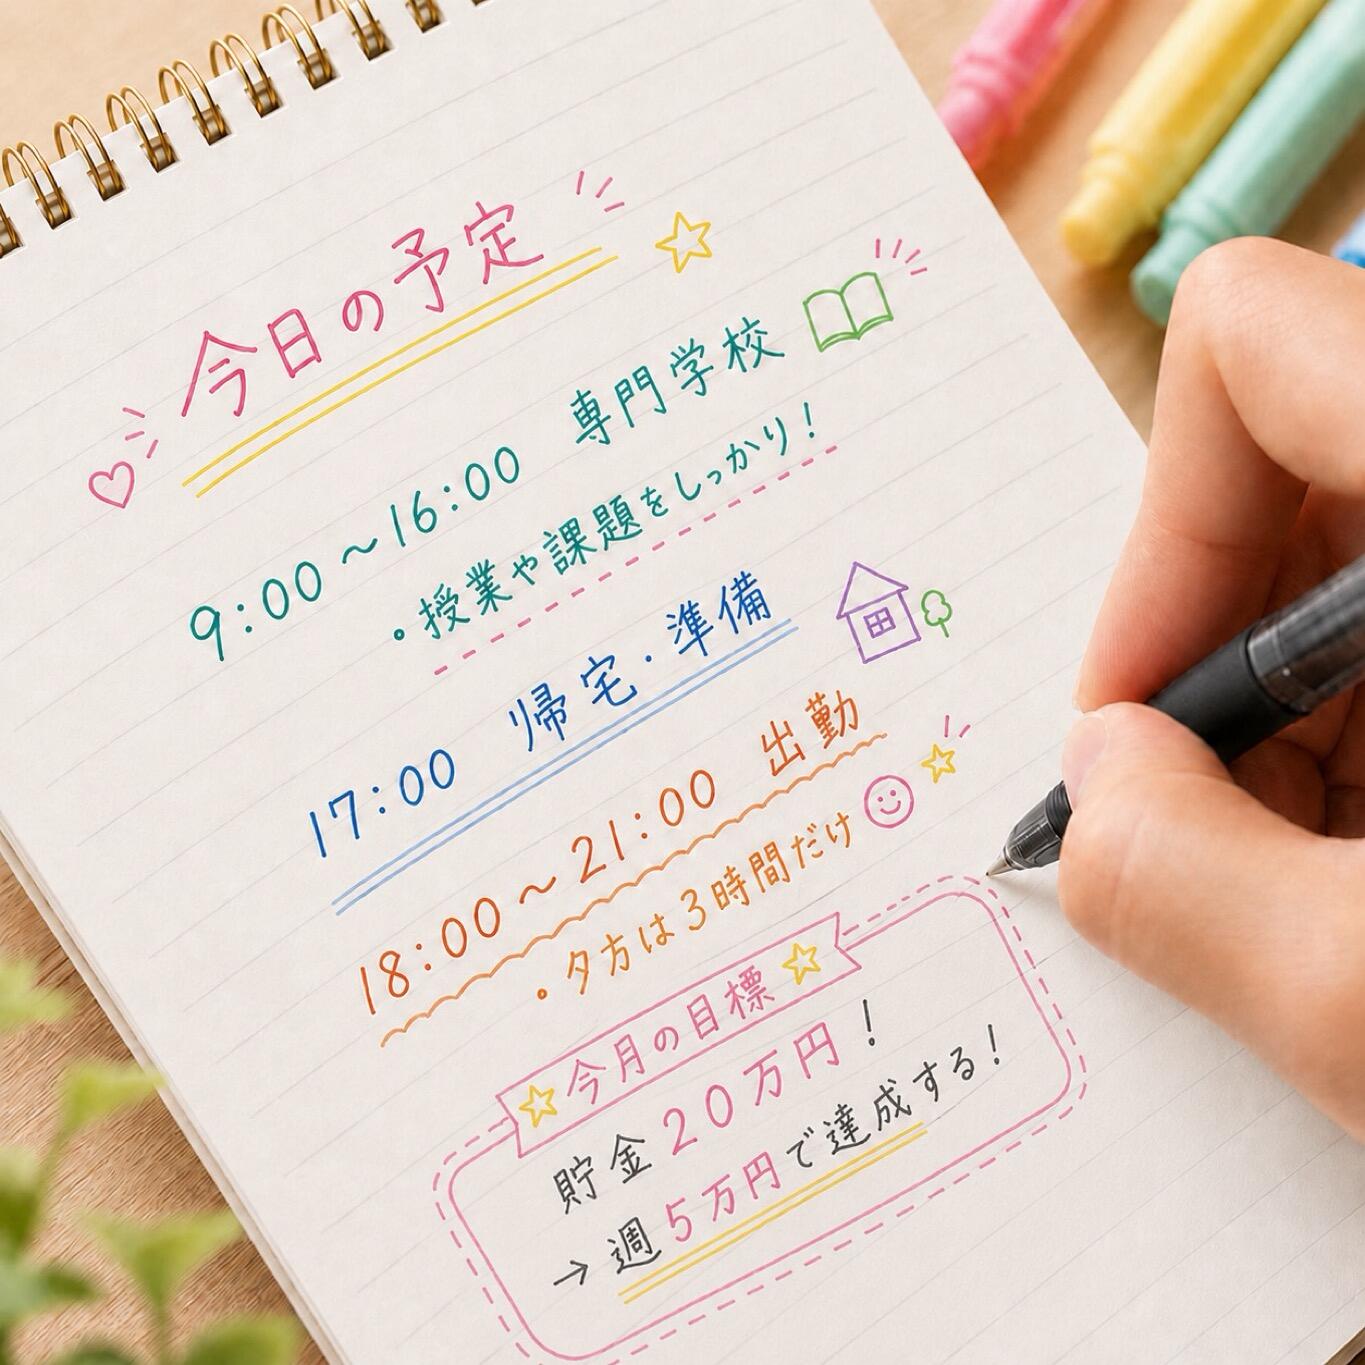 今日の予定
9:00～16:00 専門学校
・授業や課題をしっかり！
17:00 帰宅・準備
18:00～21:00 出勤
・夕方は3時間だけ
今月の目標
貯金20万円！
→週5万円で達成する！